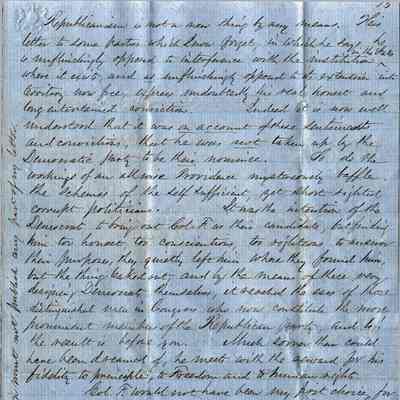 Republicanism is not a new thing by any means. His
letter to some parties which I now forget, in which he says he
is unflinchingly opposed to interference with the institution in the States
where it exists, and as unflinchingly opposed to its extension into
territory now free, express undoubtedly his real honest and
long entertained conviction. Indeed it is now well
understood that it was on account of these sentiments
and convictions, that he was not taken up by the
Democratic party to be their nominee. So do the
workings of an all wise Providence mysteriously baffle
the schemes of the self sufficient, yet short sighted,
corrupt politicians. It was the intention of the
Democrats to bring out Col. F. as their candidate, but finding
him too honest, too conscientious, too righteous to answer
their purposes, they quietly left him where they found him,
but the thing leaked out and by the means of these very
designing Democrats themselves, it reached the ears of those
distinguished men in Congress who now constitute the more
prominent members of the Republican party, and lo,
the result is before you. Much sooner than could
have been dreamed of, he meets with the reward for his
fidelity to principle, to Freedom and to human rights.
Col. F. would not have been my first choice, for
must not publish any part of my letter